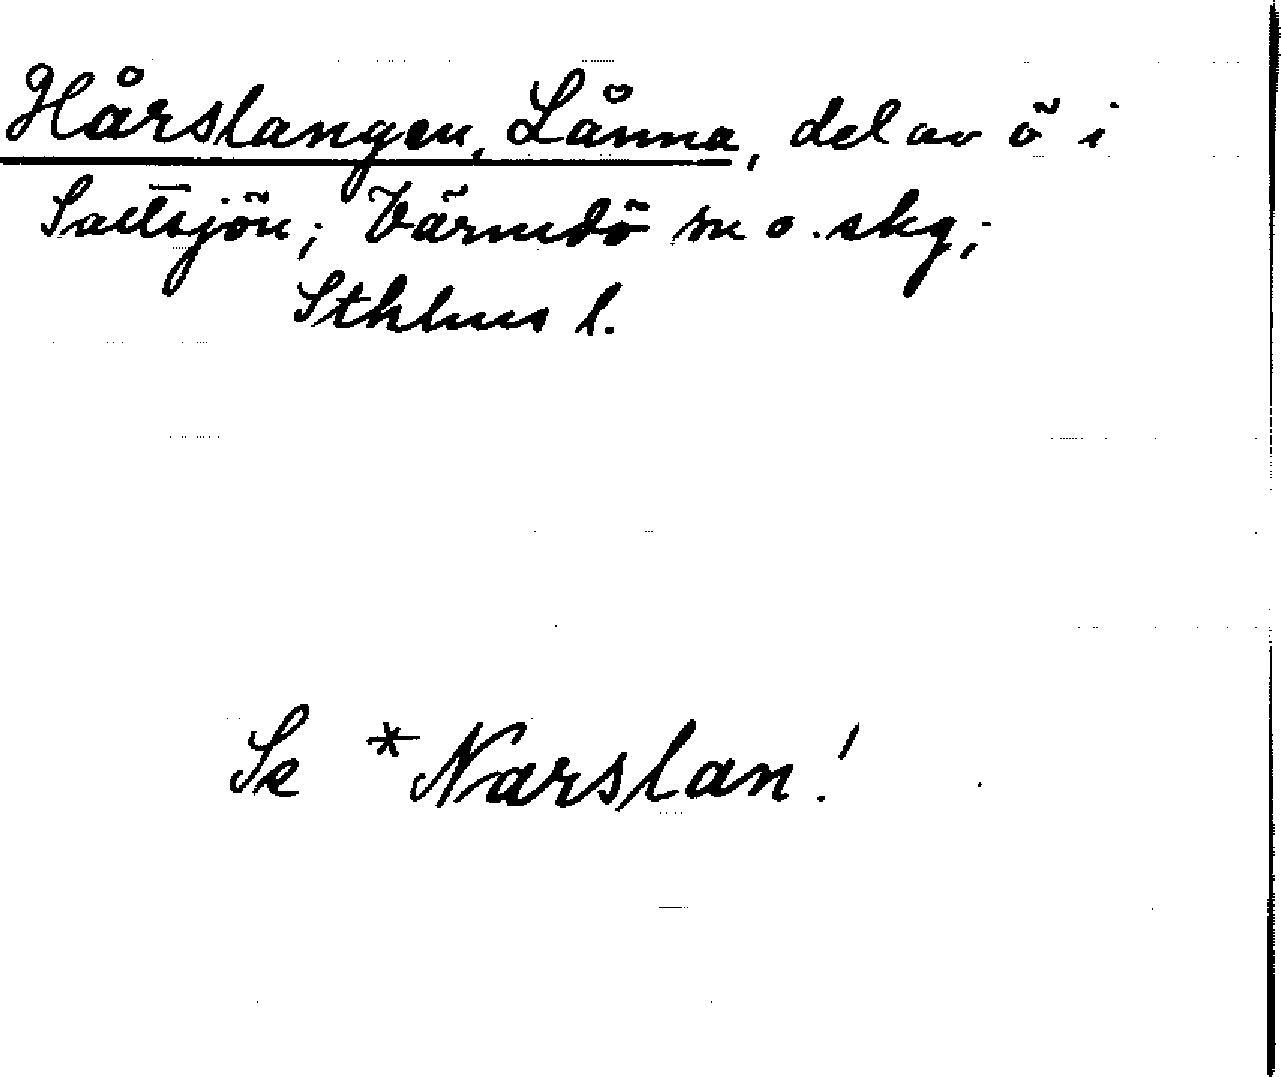 Hårslangen, Långa, del av ö i
Saltsjön; Värmdö sn o. skg;
Sthlms l.
Se *Narslan!